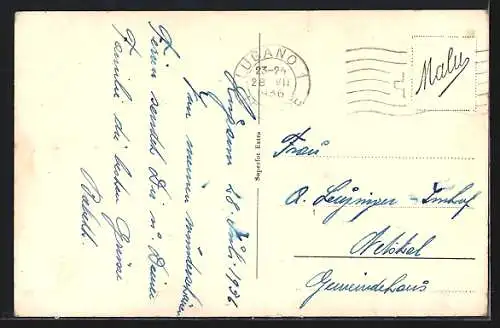 LUGANO 1
23-24
28 VII
1936
Malu
Lugano 28. Juli 1936
Von meinen wunderschönen
Ferien sendet Dir u. Deiner
Familie die besten Grüsse
Superfot Extra
Frau
A. Leuzinger-Imhof
Netstal
Gemeindehaus